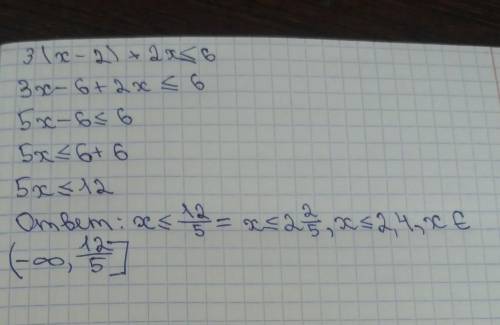 3(x-2)+2x≤6
3x-6+2x≤6
5x-6≤6
5x≤6+6
5x≤12
Ответ: x≤12/5 = x≤2 2/5, x≤2,4, x∈
(-∞, 12/5]